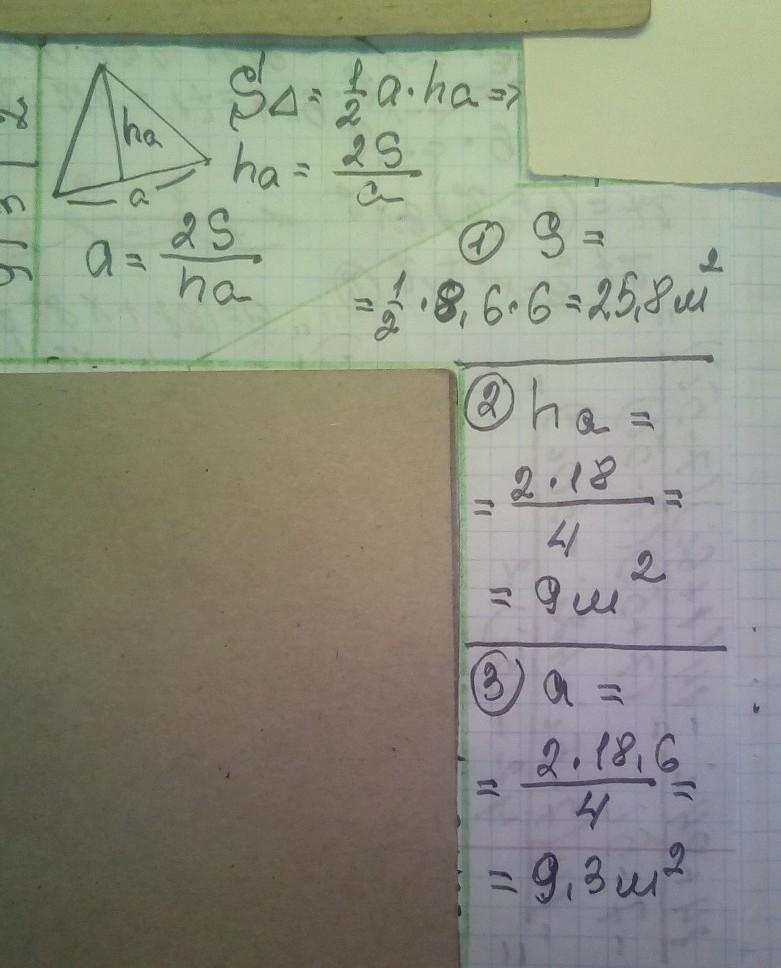 ha
a
S△ = 1/2 a · ha =>
ha = 2S/a
a = 2S/ha
① S =
= 1/2 · 8,6 · 6 = 25,8 м²
② ha =
= 2·18/4 =
= 9 м²
③ a =
= 2·18,6/4 =
= 9,3 м²